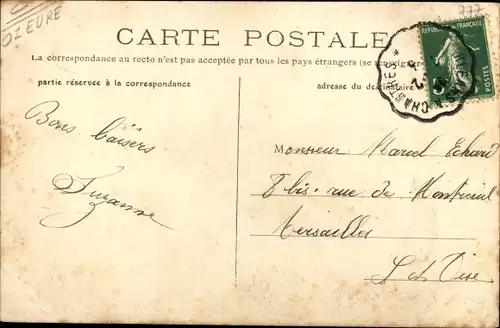 OZ EURE
777
CARTE POSTALE
REPUBLIQUE FRANÇAISE
POSTES
CHARTRE
La correspondance au recto n'est pas acceptée par tous les pays étrangers (se renseigner
partie réservée à la correspondance
adresse du destinataire
Bons baisers
Suzanne
Monsieur Marcel Echard
8 bis. rue de Montreuil
Versailles
S et Oise